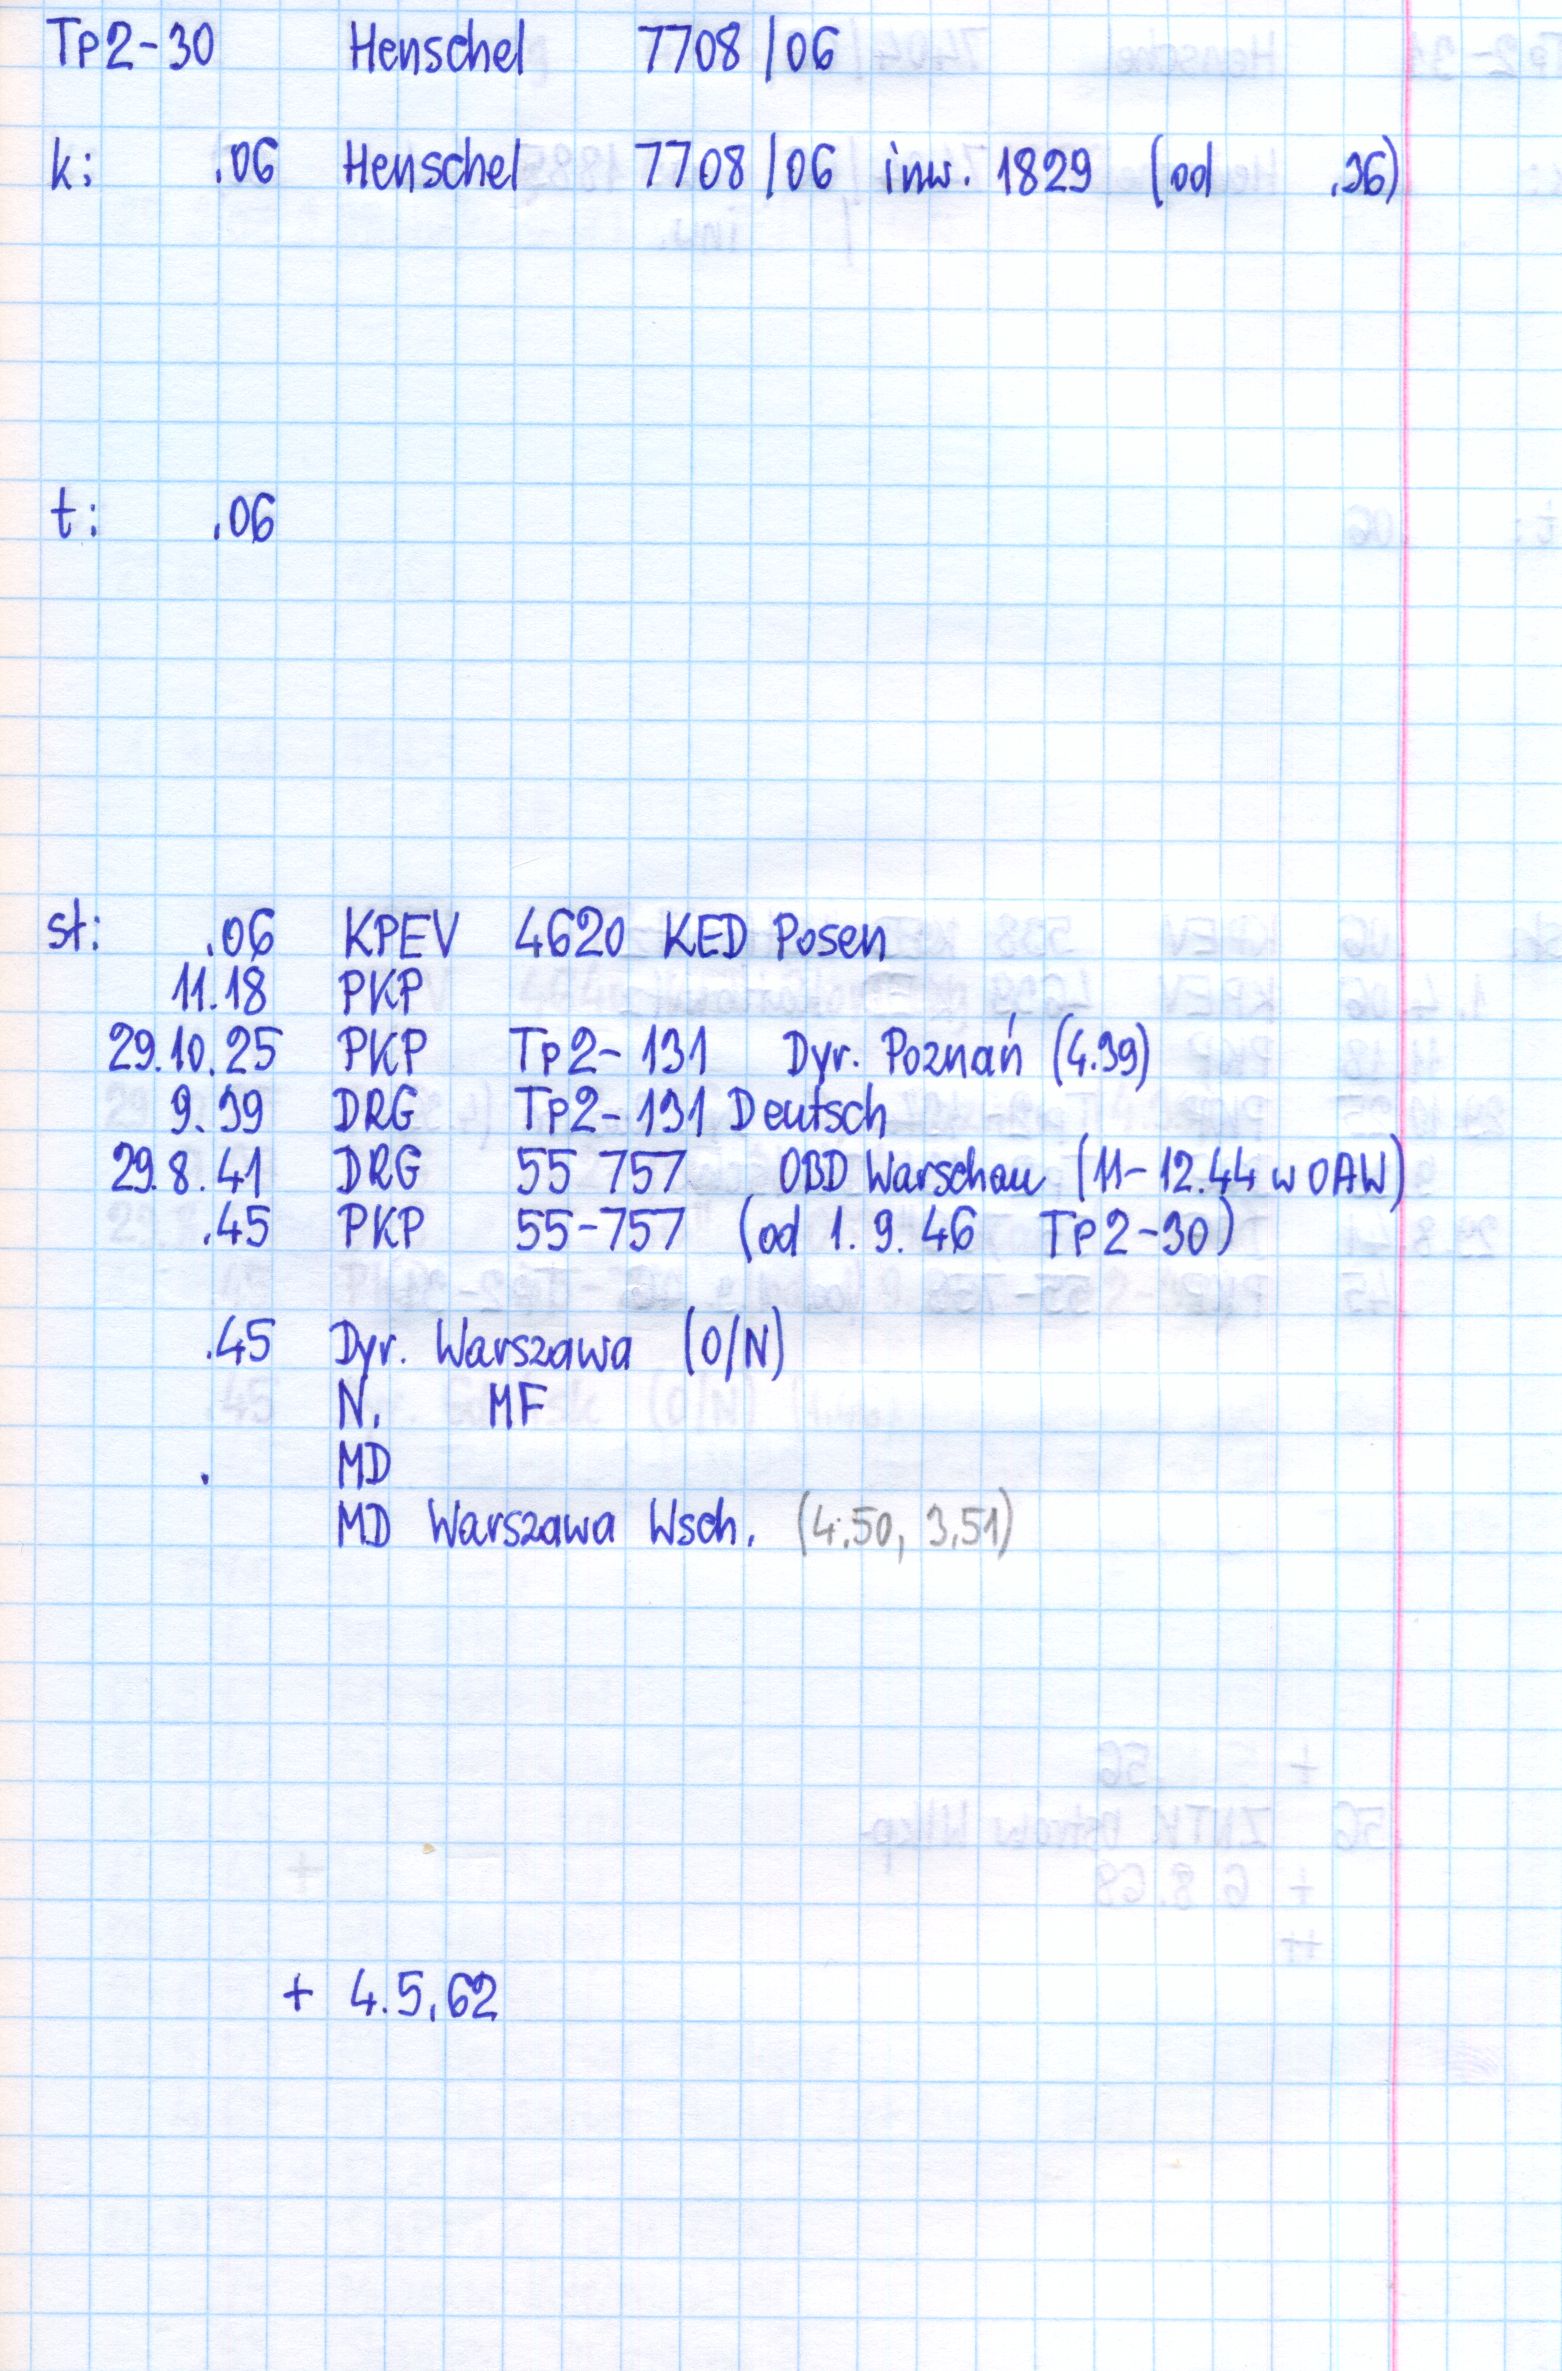 Tp2-30 Henschel 7708/06
k: .06 Henschel 7708/06 inw. 1829 (od .36)
t: .06
st: .06 KPEV 4620 KED Posen
11.18 PKP
29.10.25 PKP Tp2-131 Dyr. Poznań (4.39)
9.39 DRG Tp2-131 Deutsch
29.8.41 DRG 55 757 OBD Warschau (11-12.44 w OAW)
.45 PKP 55-757 (od 1.9.46 Tp2-30)
.45 Dyr. Warszawa (O/N)
N. MF
. MD
MD Warszawa Wsch. (4.50, 3.51)
+ 4.5.62